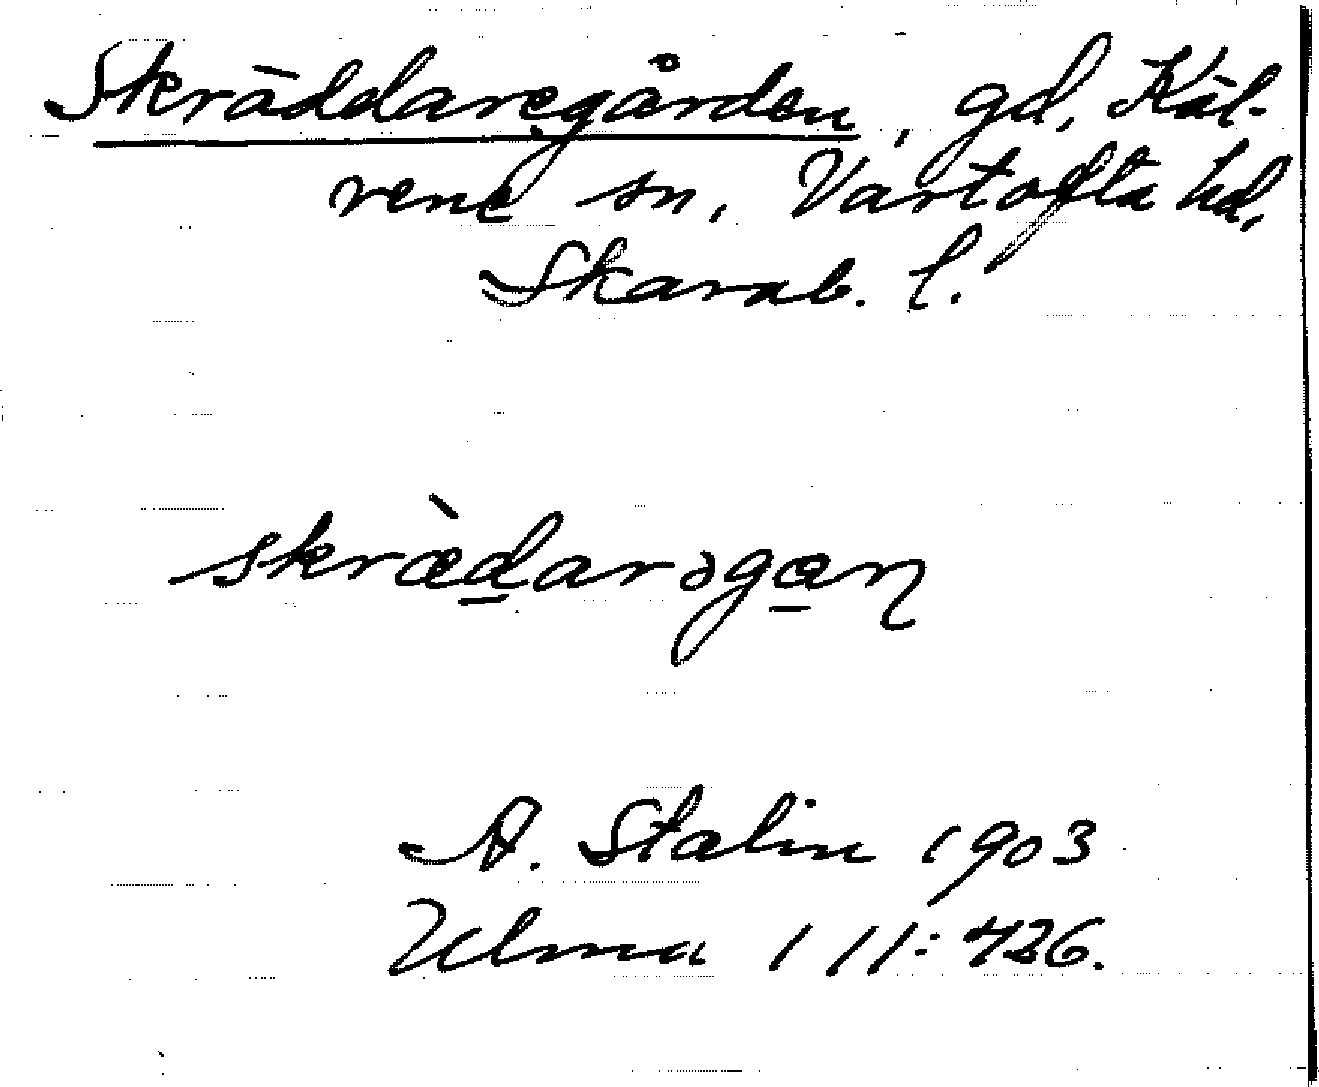 Skräddaregården, gd, Käl-
rene sn, Vartofta hd,
Skarab. l.
skræ̀daragan
A. Stalin 1903
Ulma 111:426.